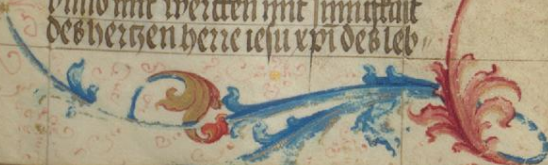 vnno mit wercken mit innigkait
des hertzen herre iesu xpi des leb